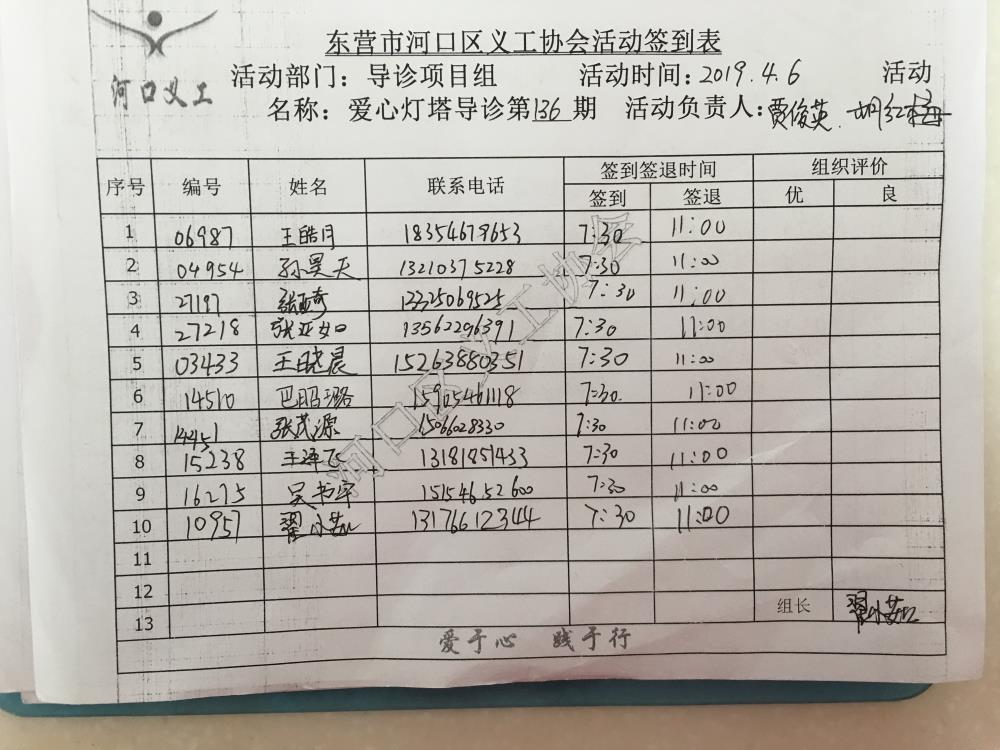 东营市河口区义工协会活动签到表
河口义工
活动部门：导诊项目组 活动时间：2019.4.6 活动
名称：爱心灯塔导诊第136期 活动负责人：贾俊英.胡红梅
序号 编号 姓名 联系电话 签到签退时间 组织评价
签到 签退 优 良
1 06987 王皓月 18354679653 7:30 11:00
2 04954 孙昊天 13210375228 7:30 11:00
3 27197 张亚奇 13325069525 7:30 11:00
4 27218 张亚如 13562296391 7:30 11:00
5 03433 王晓晨 15263880351 7:30 11:00
6 14510 巴昭璐 15905461118 7:30 11:00
7 14451 张茂源 15066028330 7:30 11:00
8 15238 13181851433 7:30 11:00
9 16275 吴书宇 15154652600 7:30 11:00
10 10957 翟小茹 13176612344 7:30 11:00
11
12
13 组长 翟小茹
爱于心 践于行
河口区义工协会